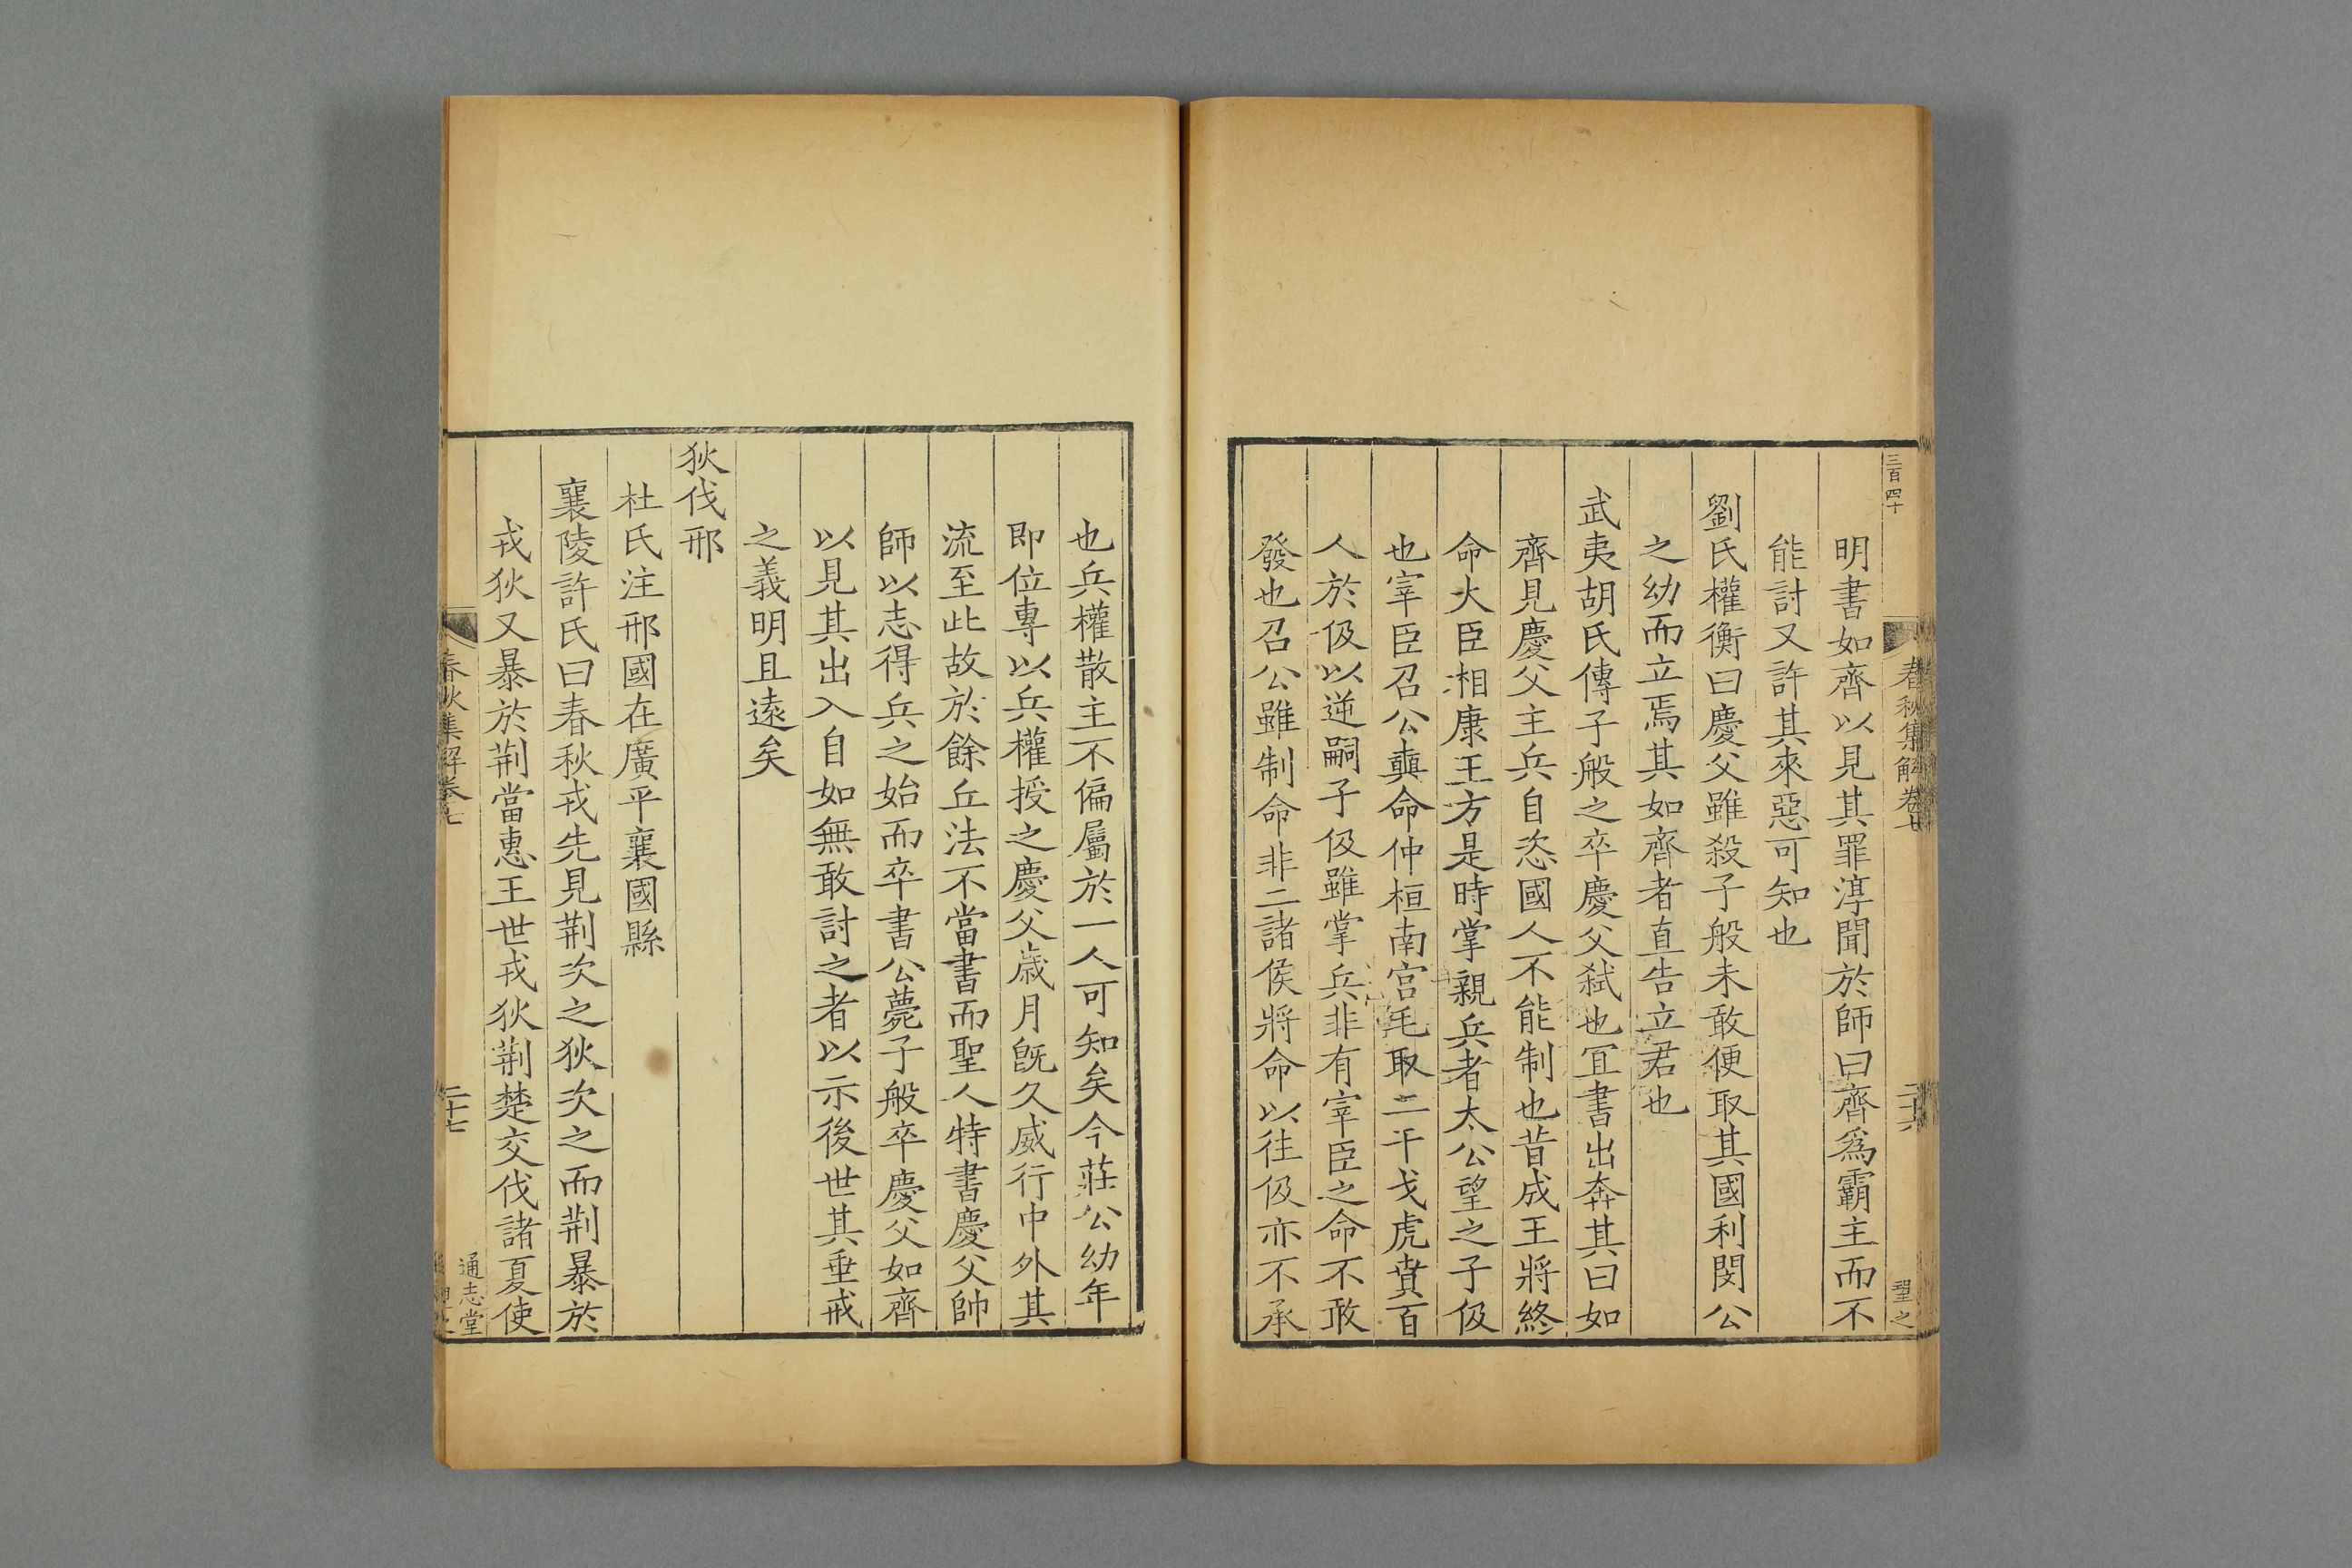 三百四十
春秋集解卷七
二十六
望之
明書如齊以見其罪淳聞於師曰齊爲霸主而不
能討又許其來惡可知也
劉氏權衡曰慶父雖殺子般未敢便取其國利閔公
之幼而立焉其如齊者直告立君也
武夷胡氏傳子般之卒慶父弒也宜書出奔其曰如
齊見慶父主兵自恣國人不能制也昔成王將終
命大臣相康王方是時掌親兵者太公望之子伋
也宰臣召公奭命仲桓南宮毛取二干戈虎賁百
人於伋以逆嗣子伋雖掌兵非有宰臣之命不敢
發也召公雖制命非二諸侯將命以往伋亦不承
也兵權散主不偏屬於一人可知矣今莊公幼年
即位專以兵權授之慶父歲月旣久威行中外其
流至此故於餘丘法不當書而聖人特書慶父帥
師以志得兵之始而卒書公薨子般卒慶父如齊
以見其出入自如無敢討之者以示後世其垂戒
之義明且遠矣
狄伐邢
杜氏注邢國在廣平襄國縣
襄陵許氏曰春秋戎先見荆次之狄次之而荆暴於
戎狄又暴於荆當惠王世戎狄荆楚交伐諸夏使
春秋集解卷七
二十七
通志堂